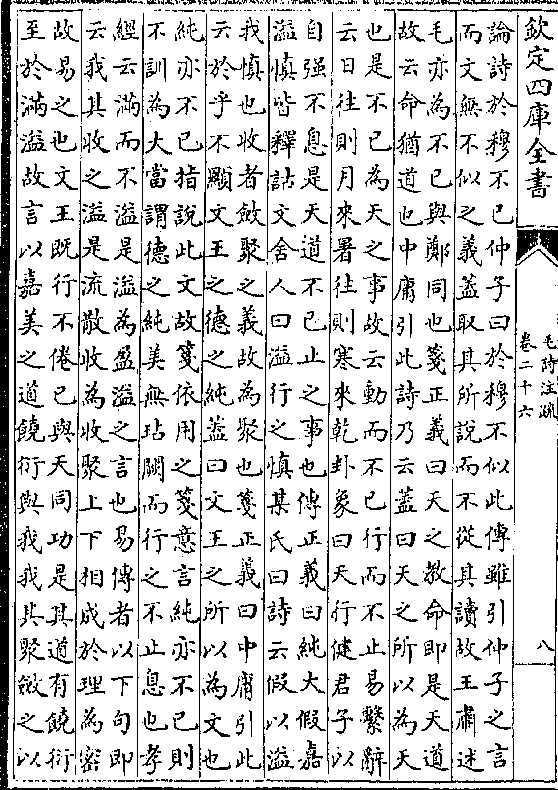 欽定四庫全書
毛詩注疏
卷二十六
八
論詩於穆不已仲子曰於穆不似此傳雖引仲子之言
而文無不似之義蓋取其所說而不從其讀故王肅述
毛亦為不已與鄭同也箋正義曰天之教命即是天道
故云命猶道也中庸引此詩乃云蓋曰天之所以為天
也是不已為天之事故云動而不已行而不止易繫辭
云日往則月來暑往則寒來乾卦象曰天行健君子以
自强不息是天道不已止之事也傳正義曰純大假嘉
溢慎皆釋詁文舍人曰溢行之慎某氏曰詩云假以溢
我慎也收者斂聚之義故為聚也箋正義曰中庸引此
云於乎不顯文王之德之純蓋曰文王之所以為文也
純亦不已指說此文故箋依用之箋意言純亦不已則
不訓為大當謂德之純美無玷闕而行之不止息也孝
經云滿而不溢是溢為盈溢之言也易傳者以下句即
云我其收之溢是流散收為收聚上下相成於理為密
故易之也文王既行不倦已與天同功是其道有饒衍
至於滿溢故言以嘉美之道饒衍與我我其聚斂之以